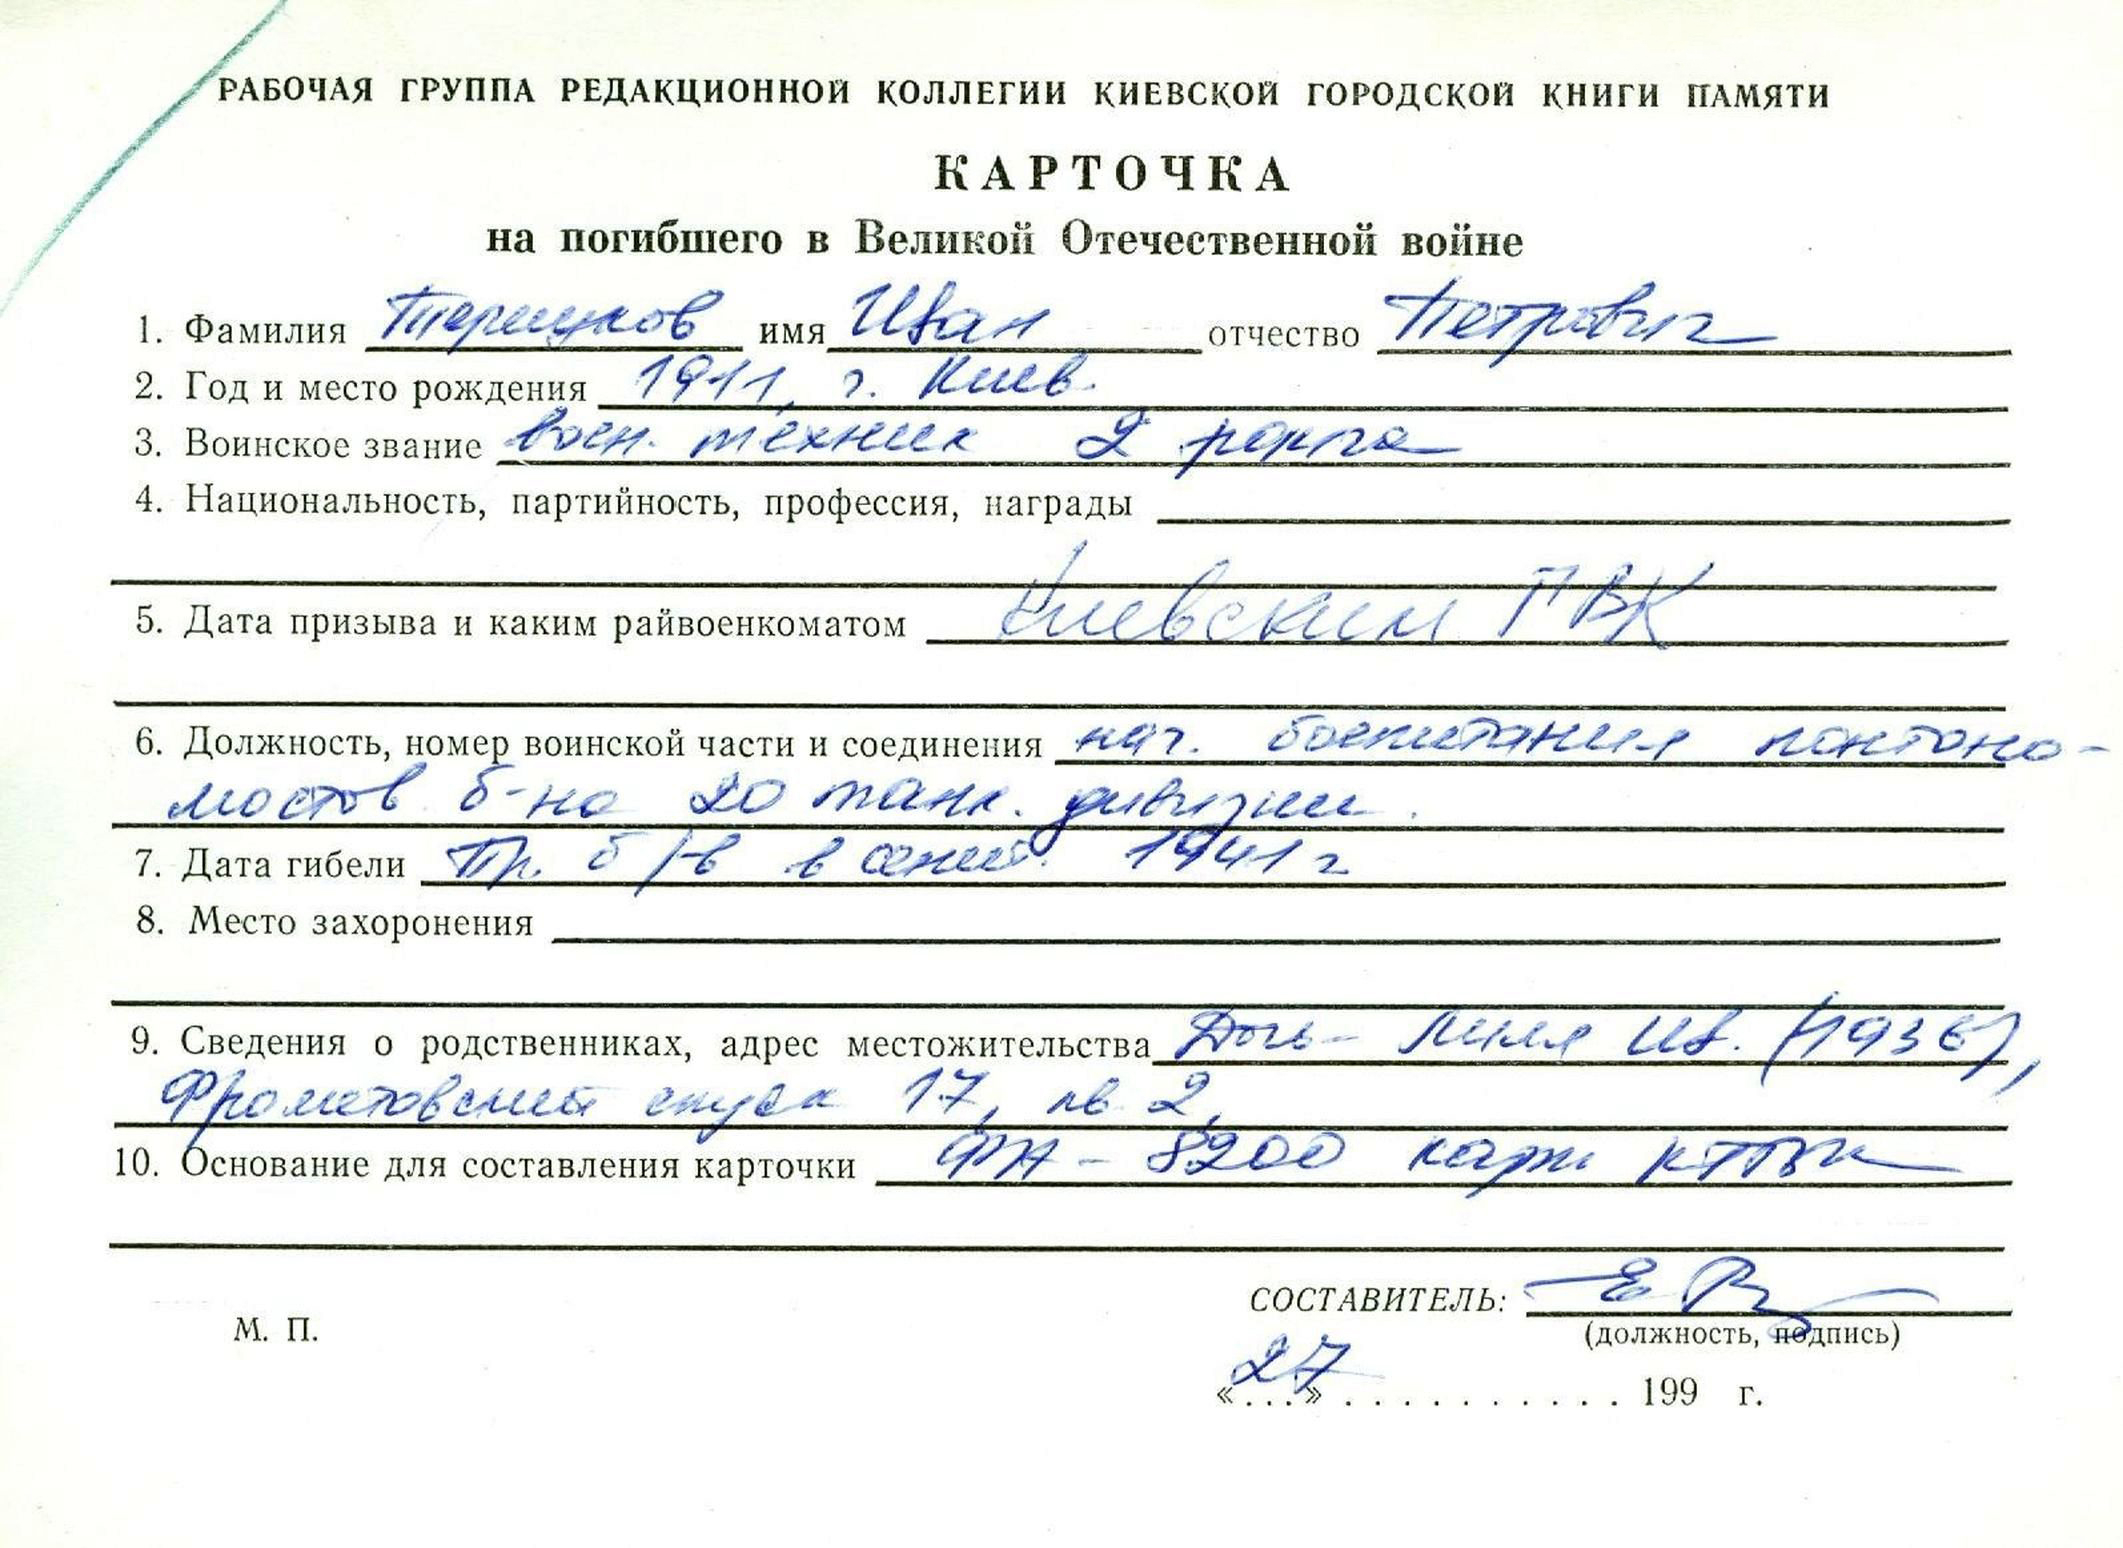 РАБОЧАЯ ГРУППА РЕДАКЦИОННОЙ КОЛЛЕГИИ КИЕВСКОЙ ГОРОДСКОЙ КНИГИ ПАМЯТИ
КАРТОЧКА
на погибшего в Великой Отечественной войне
1. Фамилия имя Иван отчество Петрович
2. Год и место рождения 1911, г. Киев.
3. Воинское звание воен. техник 2 ранга
4. Национальность, партийность, профессия, награды
5. Дата призыва и каким райвоенкоматом Киевским ГВК
6. Должность, номер воинской части и соединения нач. боепитания понтоно-
мостов б-на 20 танк. дивизии.
7. Дата гибели Пр. б/в в сент. 1941 г
8. Место захоронения
9. Сведения о родственниках, адрес местожительства Дочь - Лиля Ив. (1936),
спуск 17, кв 2,
10. Основание для составления карточки 8200
СОСТАВИТЕЛЬ:
М. П.
(должность, подпись)
«27» 199 г.